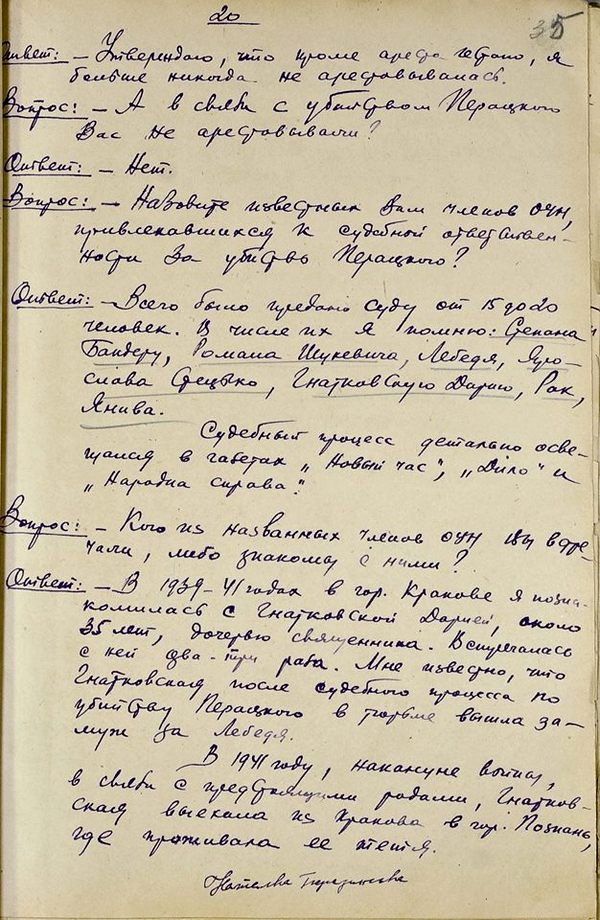 20
35
Ответ: – Утверждаю, что кроме ареста , я
больше никогда не арестовывалась.
Вопрос: – А в связи с убийством Перацкого
Вас не арестовывали?
Ответ: – Нет.
Вопрос: – Назовите известных Вам членов ОУН,
привлекавшихся к судебной ответствен-
ности за убийство Перацкого?
Ответ: – Всего было предано суду от 15 до 20
человек. В числе их я помню: Степана
Бандеру, Романа Шукевича, Лебедя, Яро-
слава Стецько, Гнатковскую Дарию, Рак,
Янива.
Судебный процесс детально осве-
щался в газетах „Новый час", „Дило" и
„Народна справа".
Вопрос: – Кого из названных членов ОУН Вы встре-
чали, либо знакомы с ними?
Ответ: – В 1939-41 годах в гор. Кракове я позна-
комилась с Гнатковской Дарией, около
35 лет, дочерью священника. Встречалась
с ней два-три раза. Мне известно, что
Гнатковская после судебного процесса по
убийству Перацкого в тюрьме вышла за-
муж за Лебедя.
В 1941 году, накануне войны,
в связи с предстоящими родами, Гнатков-
ская выехала из Кракова в гор. Познань,
где проживала ее тетя.